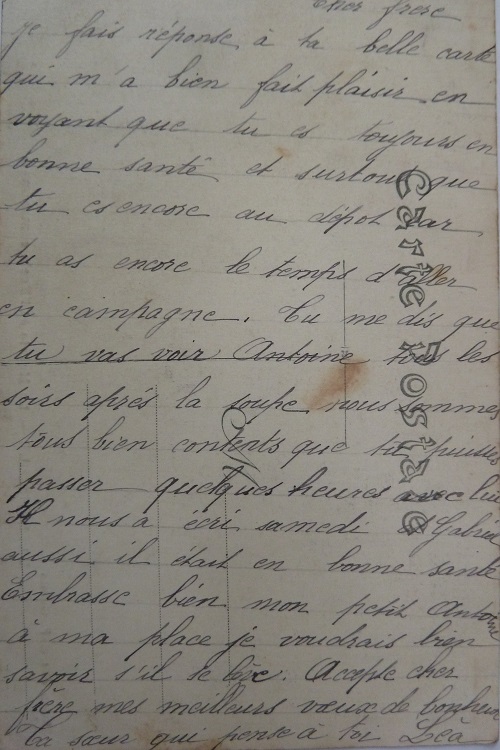 Cher frère
je fais réponse à ta belle carte
qui m'a bien fait plaisir en
voyant que tu es toujours en
bonne santé et surtout que
tu es encore au dépot car
tu as encore le temps d'aller
en campagne. Tu me dis que
tu vas voir Antoine tous les
soirs aprés la soupe nous sommes
tous bien contents que tu puisses
passer quelques heures avec lui
Il nous a écri samedi et Gabriel
aussi il était en bonne santé
Embrasse bien mon petit Antoine
à ma place je voudrais bien
savoir s'il se lève. Accepte cher
frère mes meilleurs vœux de bonheur
Ta sœur qui pense à toi Léa
Carte Postale